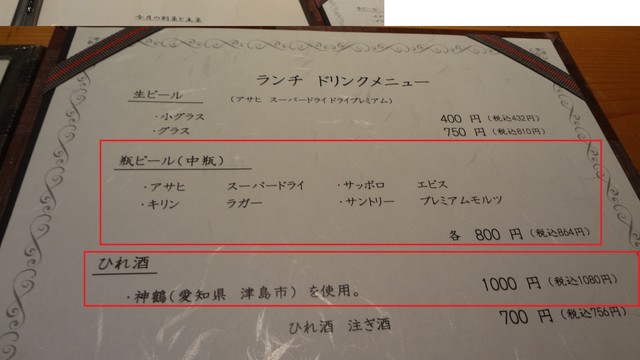 今月の割菜と主菜
ランチ ドリンクメニュー
生ビール
(アサヒ スーパードライドライプレミアム)
・小グラス 400 円(税込432円)
・グラス 750 円(税込810円)
瓶ビール(中瓶)
・アサヒ スーパードライ ・サッポロ エビス
・キリン ラガー ・サントリー プレミアムモルツ
各 800 円(税込864円)
ひれ酒 1000 円(税込1080円)
・神鶴(愛知県 津島市)を使用。
ひれ酒 注ぎ酒 700 円(税込756円)